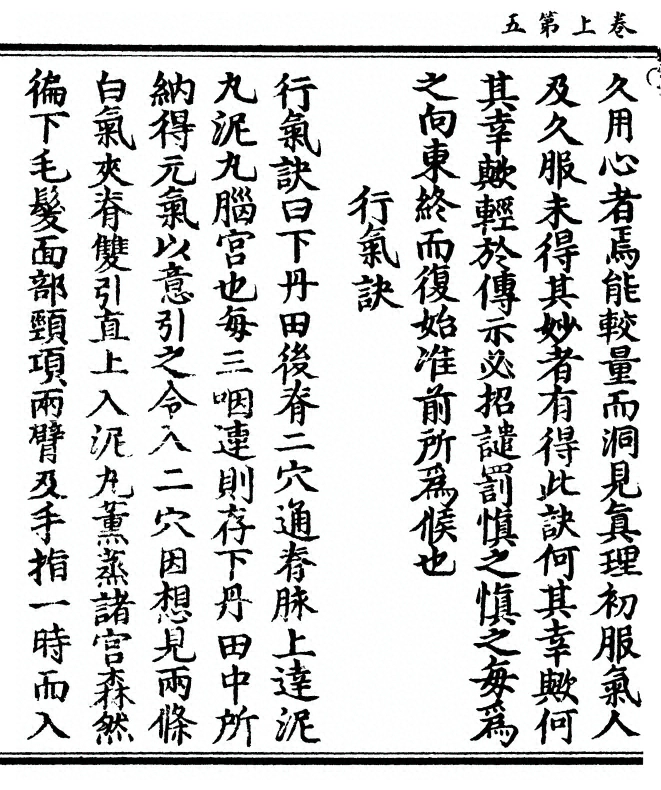 卷上第五
久用心者焉能較量而洞見眞理初服氣人
及久服未得其妙者有得此訣何其幸歟何
其幸歟輕於傳示必招譴罰愼之愼之每爲
之向東終而復始准前所爲候也
行氣訣
行氣訣曰下丹田後脊二穴通脊脉上達泥
丸泥丸腦宮也每三咽連則存下丹田中所
納得元氣以意引之令入二穴因想見兩條
白氣夾脊雙引直上入泥丸薰蒸諸宮森然
徧下毛髮面部頸項兩臂及手指一時而入